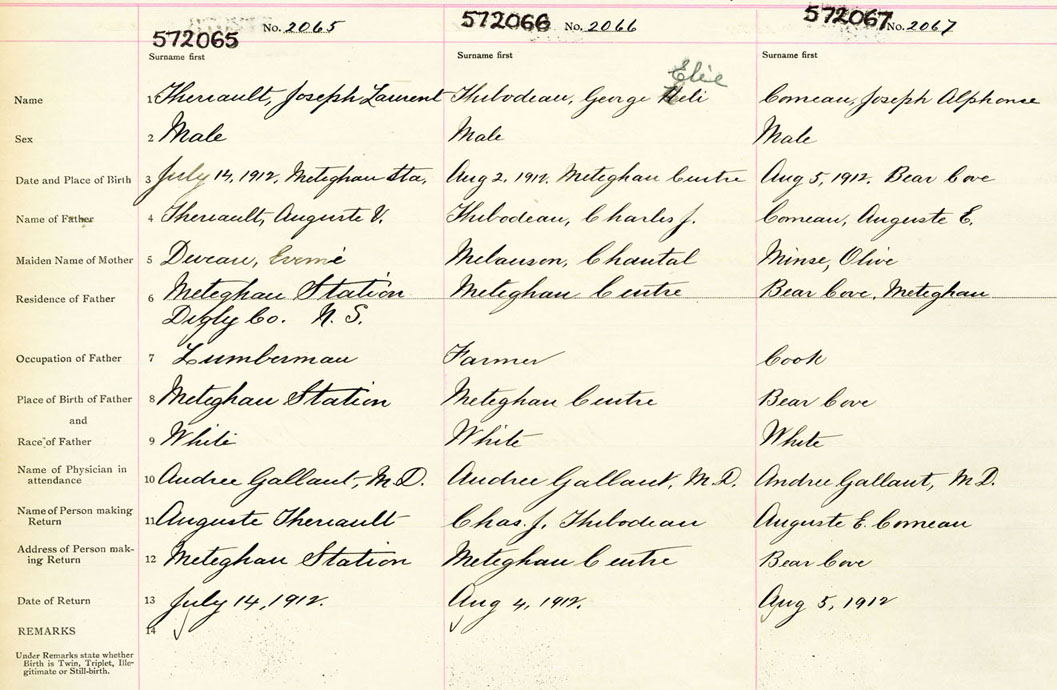 572065 No. 2065 572066 No. 2066 572067 No. 2067
Surname first Surname first Surname first
Name 1 Theriault, Joseph Laurent Thibodeau, George Heli Elie Comeau, Joseph Alphonse
Sex 2 Male Male Male
Date and Place of Birth 3 July 14, 1912, Meteghan Sta. Aug 2, 1912. Meteghan Centre Aug 5, 1912. Bear Cove
Name of Father 4 Theriault, Auguste V. Thibodeau, Charles J. Comeau, Auguste E.
Maiden Name of Mother 5 Deveau, Melanson, Chantal Olive
Residence of Father 6 Meteghan Station Meteghan Centre Bear Cove, Meteghan
Digby Co. N. S.
Occupation of Father 7 Lumberman Farmer Cook
Place of Birth of Father 8 Meteghan Station Meteghan Centre Bear Cove
and
Race of Father 9 White White White
Name of Physician in
attendance 10 Andree Gallant, M.D. Andree Gallant, M.D. Andree Gallant, M.D.
Name of Person making
Return 11 Auguste Theriault Chas. J. Thibodeau Auguste E. Comeau
Address of Person mak-
ing Return 12 Meteghan Station Meteghan Centre Bear Cove
Date of Return 13 July 14, 1912. Aug 4, 1912. Aug 5, 1912
REMARKS 14
Under Remarks state whether
Birth is Twin, Triplet, Ille-
gitimate or Still-birth.